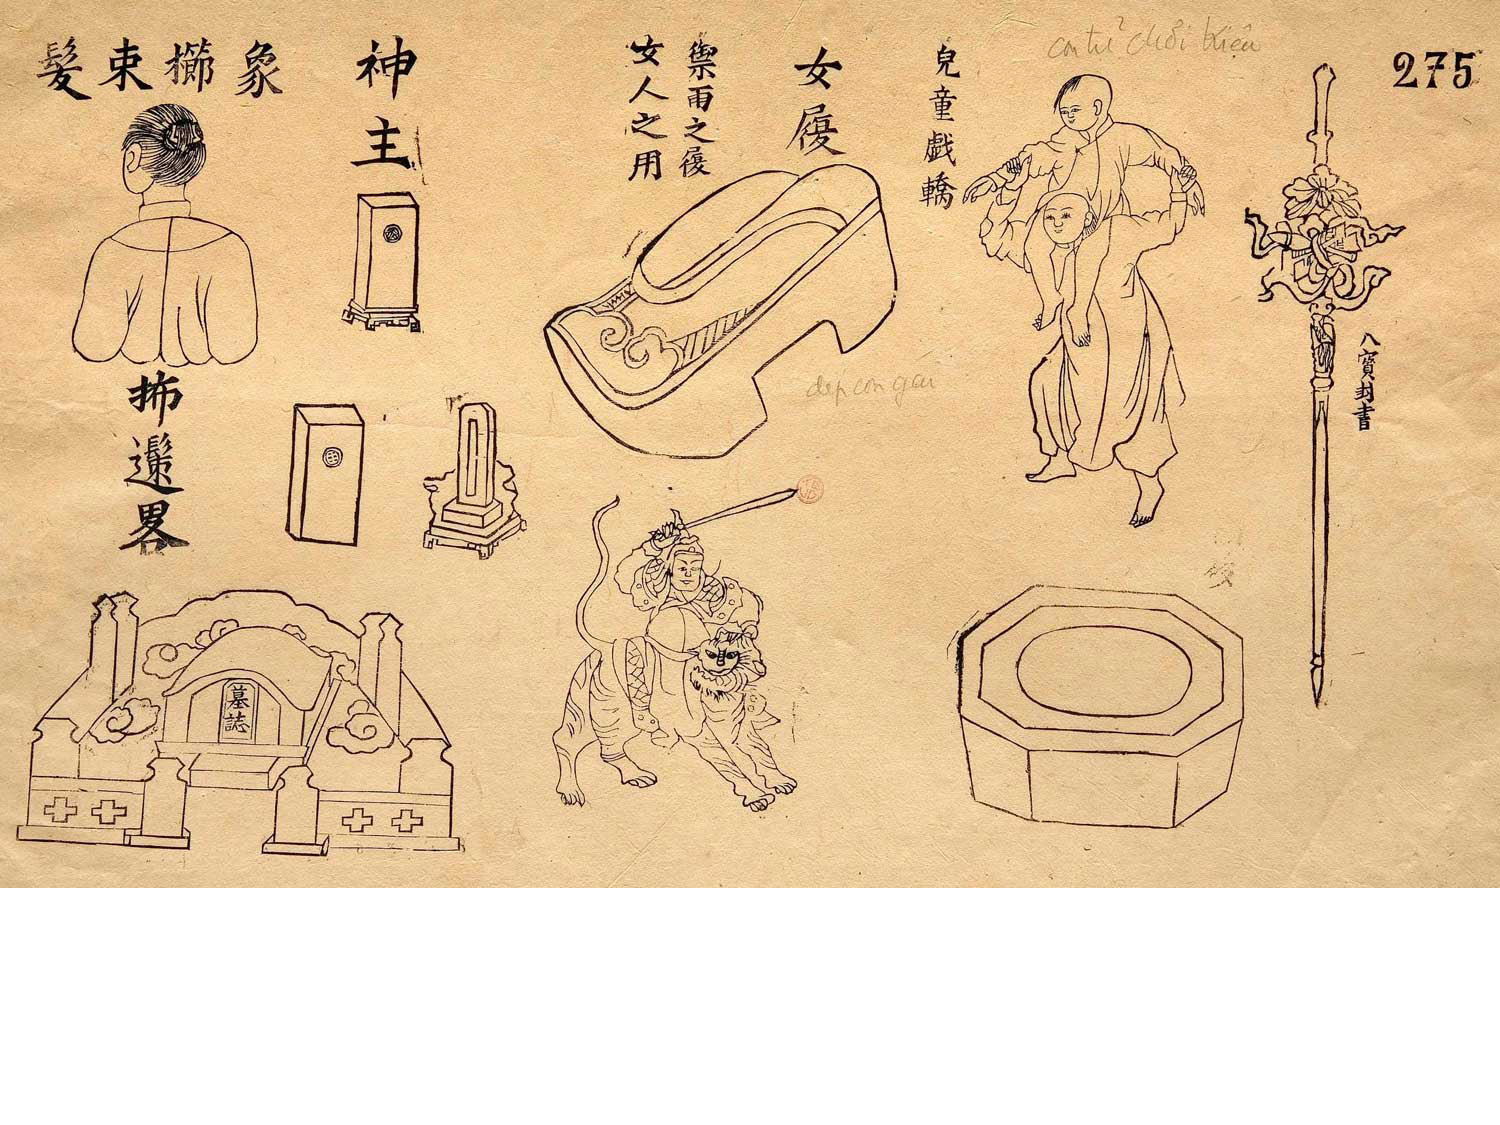 275
con trẻ chơi kiệu
兒童戲轎
八寶封書
女屐
禦雨之屐
女人之用
dep con gai
神主
象櫛束髮
墓誌